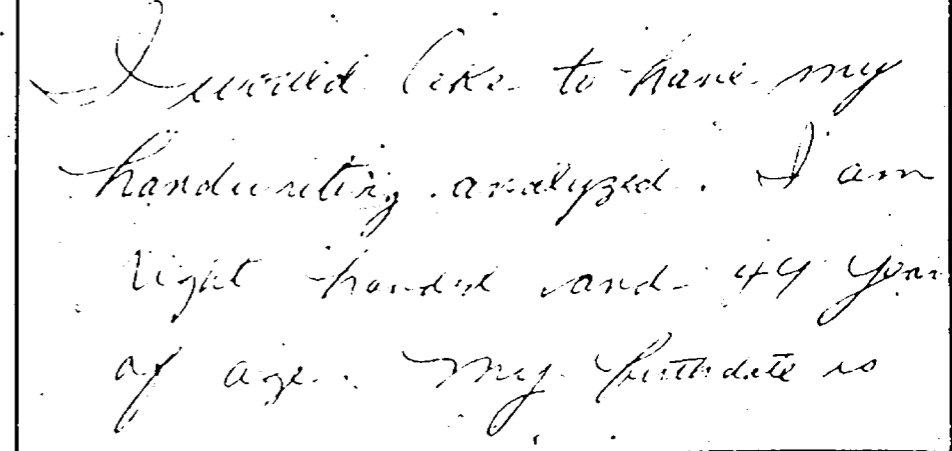 I would like to have my
handwriting analyzed. I am
right handed and 44 year
of age. My birthdate is